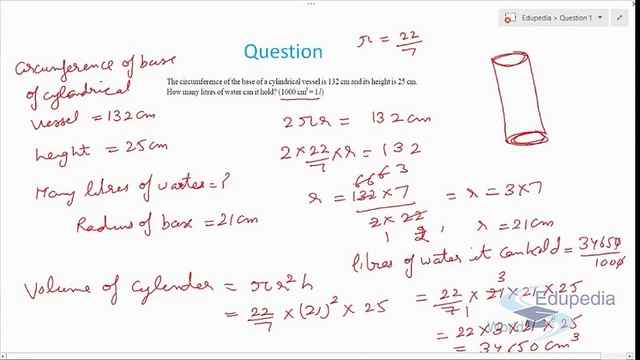 Edupedia > Question 1
Question
π = 22/7
The circumference of the base of a cylindrical vessel is 132 cm and its height is 25 cm.
How many litres of water can it hold? (1000 cm³ = 1l)
Circumference of base
of cylindrical
Vessel = 132 cm
height = 25 cm
Many litres of water = ?
Radius of base = 21 cm
2πr = 132 cm
2 × 22/7 × r = 132
r = 132 × 7 / 2 × 22 = r = 3×7
r = 21 cm
litres of water it can hold = 34650/1000
Volume of cylender = πr²h
= 22/7 × (21)² × 25
= 22/7 × 21 × 21 × 25
= 22 × 3 × 21 × 25
= 34650 cm³
Edupedia